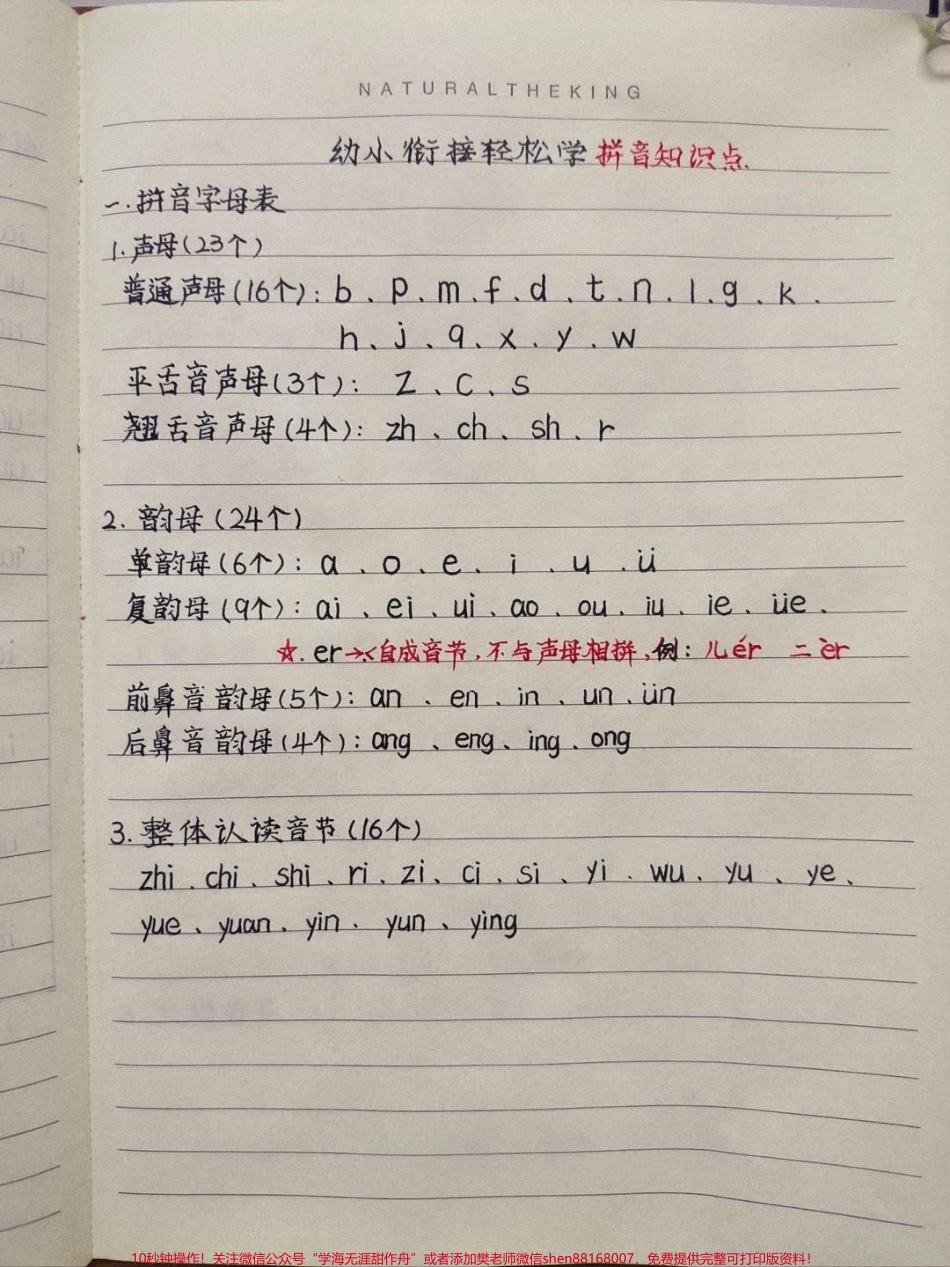 NATURALTHEKING
幼小衔接轻松学拼音知识点
一.拼音字母表
1.声母(23个)
普通声母(16个): b、p、m、f、d、t、n、l、g、k、
h、j、q、x、y、w
平舌音声母(3个): z、c、s
翘舌音声母(4个): zh、ch、sh、r
2.韵母(24个)
单韵母(6个): a、o、e、i、u、ü
复韵母(9个): ai、ei、ui、ao、ou、iu、ie、üe、
☆.er→自成音节,不与声母相拼,例:儿ér 二èr
前鼻音韵母(5个): an、en、in、un、ün
后鼻音韵母(4个): ang、eng、ing、ong
3.整体认读音节(16个)
zhi、chi、shi、ri、zi、ci、si、yi、wu、yu、ye、
yue、yuan、yin、yun、ying
10秒钟操作！关注微信公众号“学海无涯甜作舟”或者添加樊老师微信shen88168007，免费提供完整可打印版资料！